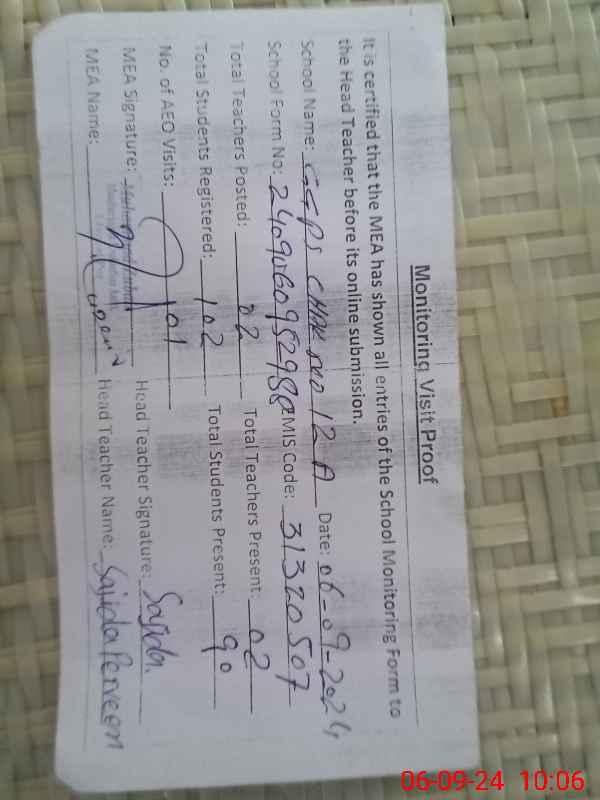 Monitoring Visit Proof
It is certified that the MEA has shown all entries of the School Monitoring Form to
the Head Teacher before its online submission.
School Name: GGPS CHAK NO 12 A Date: 06-09-2024
School Form No: 2409060952988 EMIS Code: 31320507
Total Teachers Posted: 02 Total Teachers Present: 02
Total Students Registered: 102 Total Students Present: 90
No. of AEO Visits: 01
MEA Signature: Head Teacher Signature: Sajida.
MEA Name: Head Teacher Name: Sajida Perveen
06-09-24 10:06